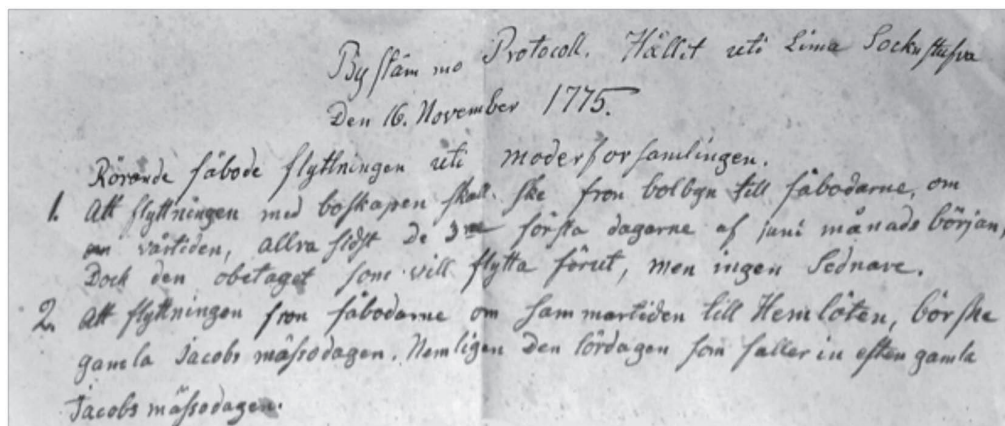 Bystäm mo Protocoll. Hållit uti Lima Sockustufva
Den 16. November 1775.
Rörande fäbode flyttningen uti moderforsamlingen.
1. Att flyttningen med boskapen skall ske fron bolbyn till fäbodarne, om
vårtiden, allra sidst de 3ne första dagarne af juni månads början,
Dock den obetaget som vill flytta förut, men ingen Sednare.
2. Att flyttningen fron fäbodarne om sommartiden till Hemlöten, bör ske
gamla Jacobs mässodagen. Nemligen Den lördagen som faller in efter gamla
Jacobs mässodagen.